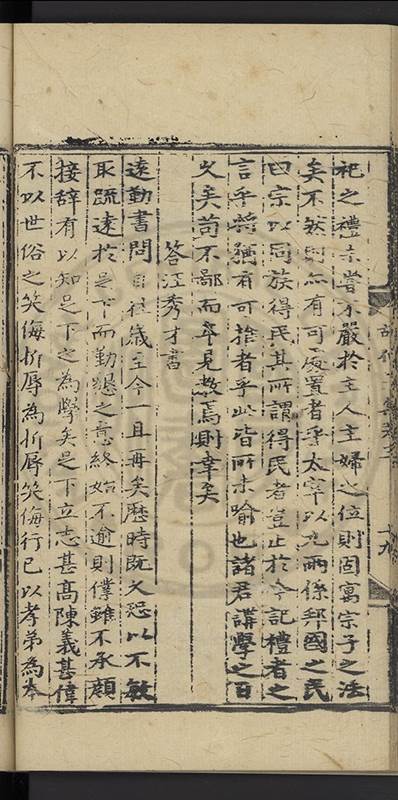 祀之禮未嘗不嚴於主人主婦之位則固寓宗子之法
矣不然則亦有可處置者乎太宰以九兩係邦國之民
曰宗以同族得民其所謂得民者豈止於今記禮者之
言乎將猶有可捨者乎此皆所未喻也諸君講學之日
久矣苟不鄙而卒見教焉則幸矣
答汪秀才書
遠勤書問自往歲至今一且再矣歷時既久恐以不敏
取疏遠於足下而勤懇之意終始不逾則僕雖不承顏
接辞有以知足下之為學矣足下立志甚高陳義甚偉
不以世俗之笑侮折辱為折辱笑侮行已以孝弟為本